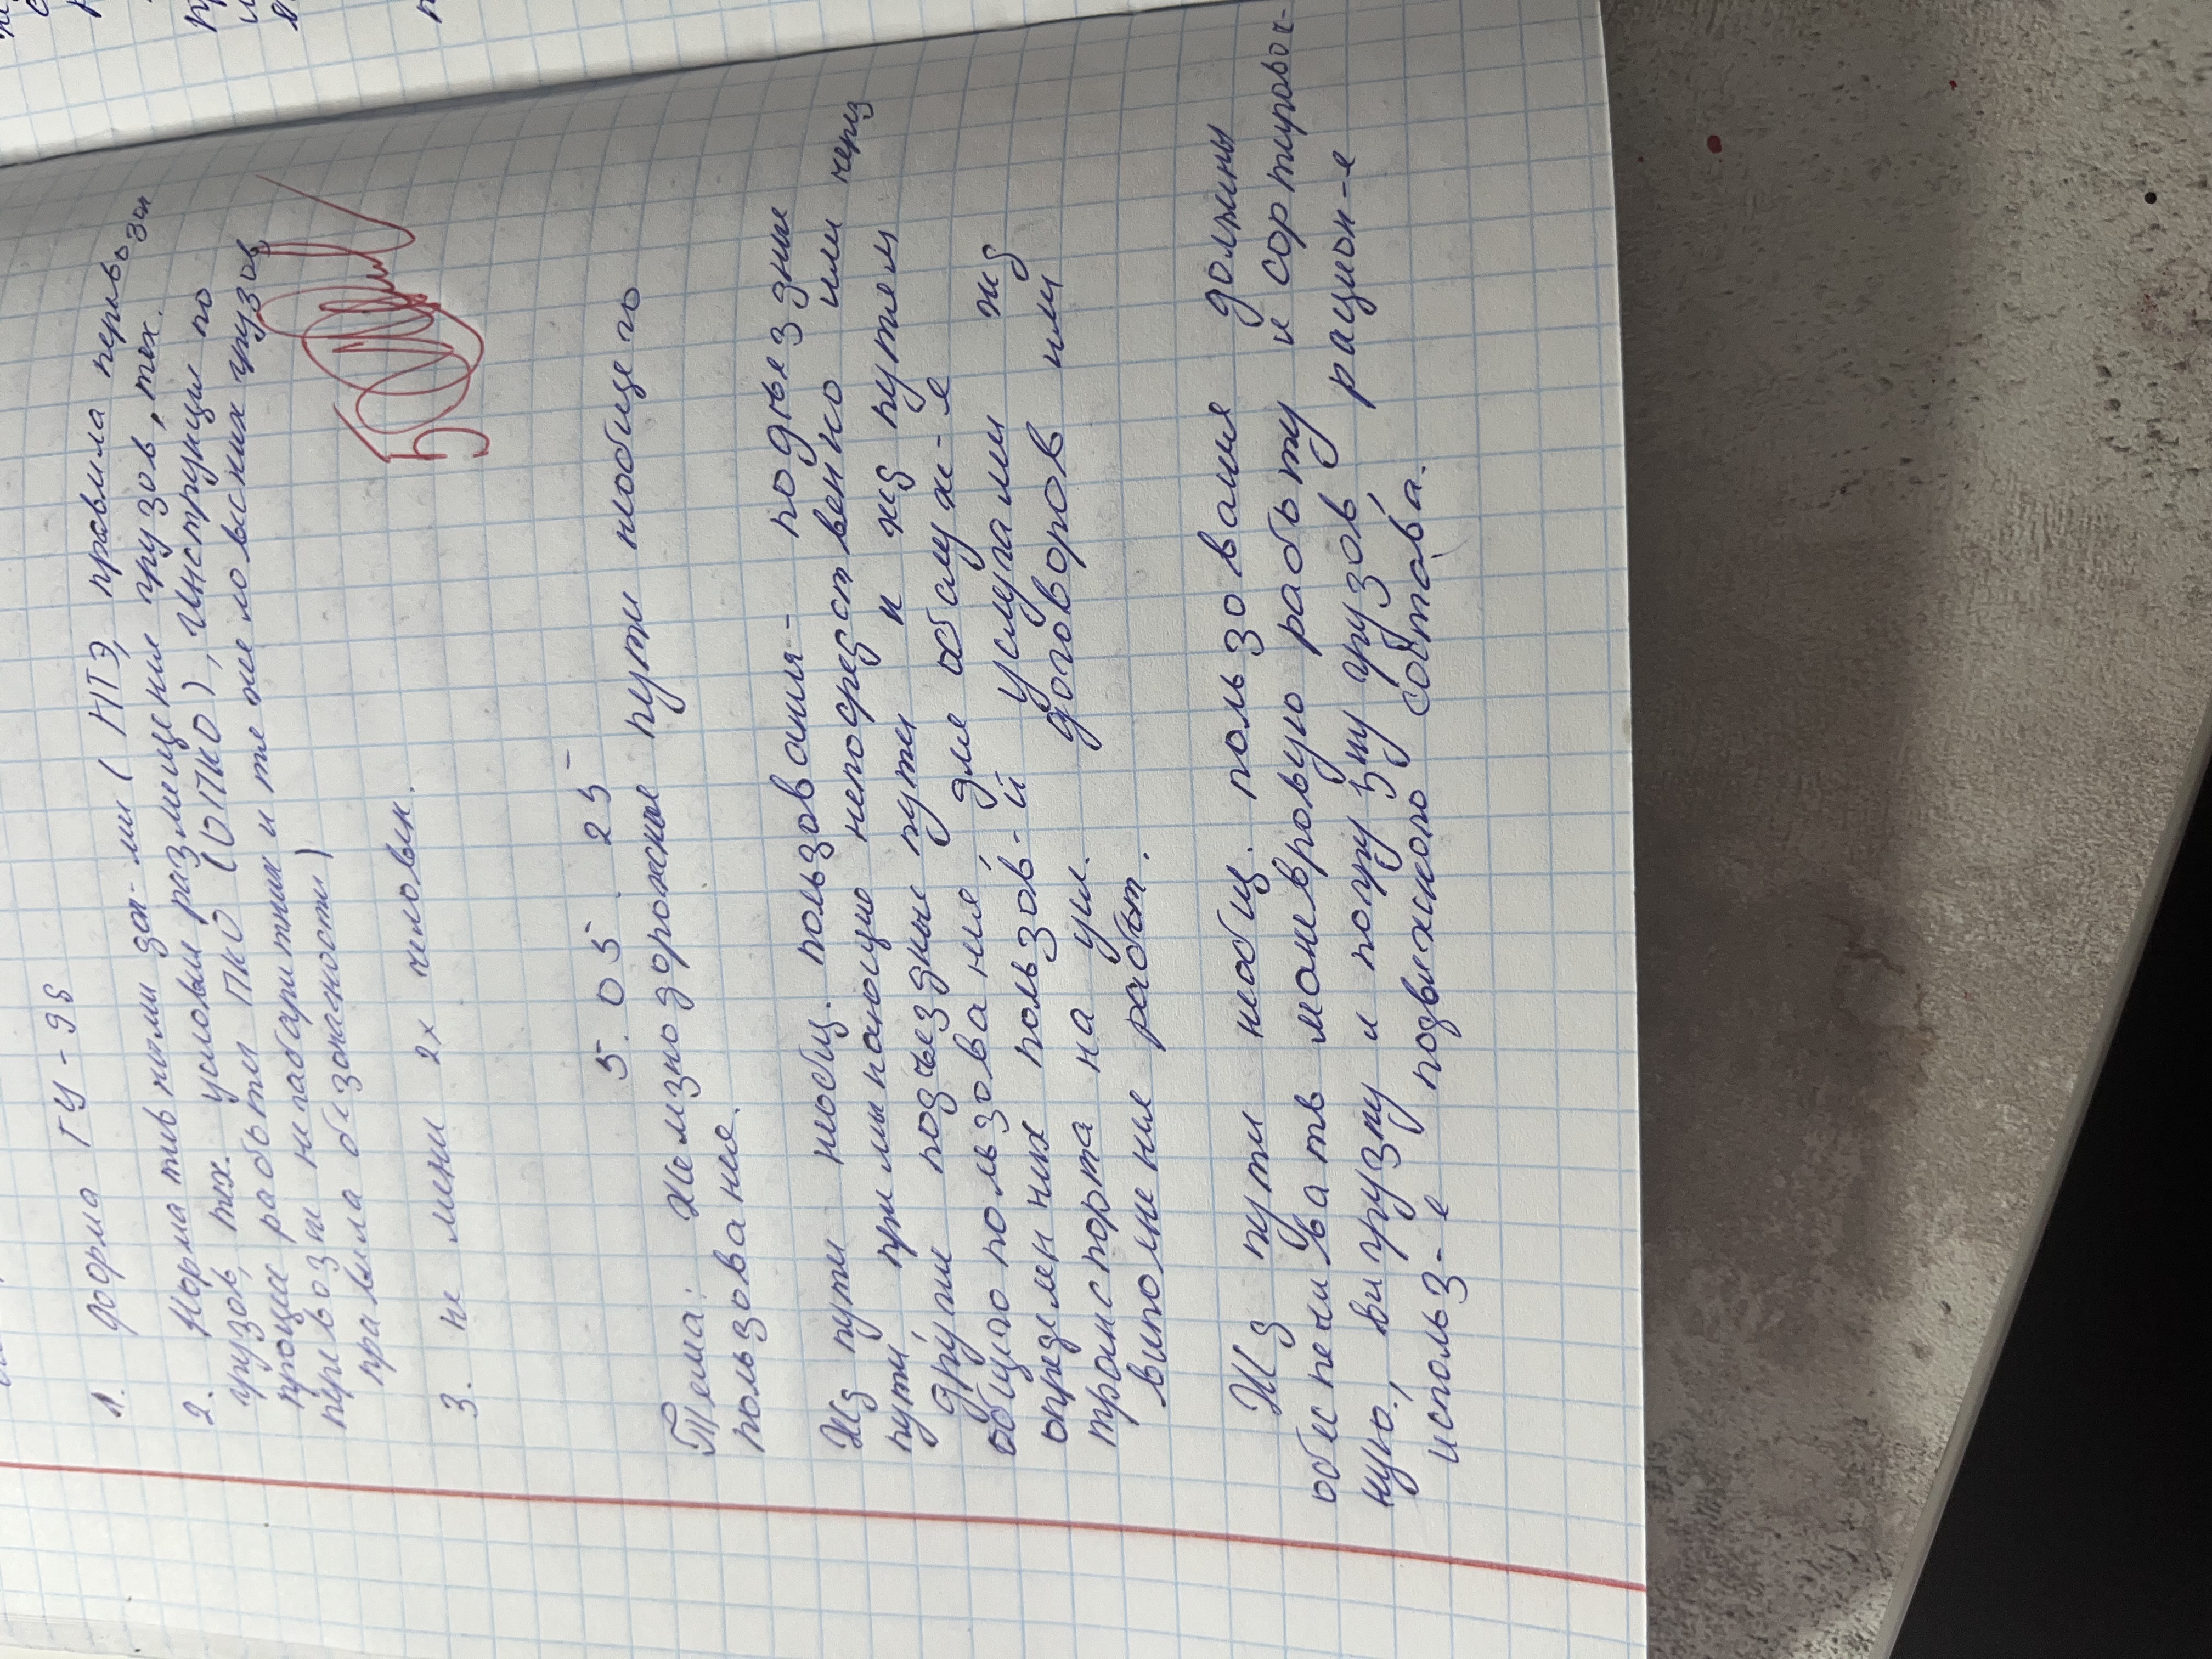 1. Форма ГУ-98
2. Нормативными док-ми (НТЭ, правила перевозки
грузов, тех. условия размещения грузов, тех.
процесс работы ПКО (ОПКО), инструкции по
перевозке негабаритных и тяжеловесных грузов
правила безопасности)
3. не менее 2х человек.
5
5.05.25
Тема: Железнодорожные пути необщего
пользования.
Жд пути необщ. пользования - подъездные
пути примыкающие непосредственно или через
другие подъездные пути к жд путем
общего пользования, для обслуж-е
определенних пользов-й услугами жд
транспорта на усл. договоров или
виполнение работ.
Жд пути необщ. пользования должны
обеспечивать маневровую работу и сортировоч-
ную, вигрузку и погрузку грузов, рацион-е
использ-е подвижного состава.